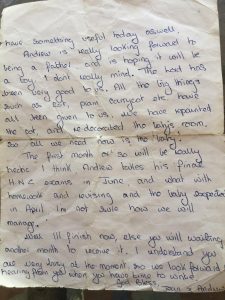 have something useful today aswell.
Andrew is really looking forward to
being a father and is hoping it will be
a boy, I dont really mind. The Lord has
been very good to us. All the big things
such as cot, pram, carrycot etc. have
all been given to us. We have repainted
the cot, and re-decorated the baby's room,
so all we need now is the 'baby'.
The first month or so will be really
hectic I think Andrew takes his finals
H.N.C exams in June and what with
homework and revising and the baby expected
in April I'm not sure how we will
manage.
Well I'll finish now, else you will waiting
another month to receive it. I understand you
are very busy at the moment so we look forward
hearing from you when you have time to write.
God Bless,
& Andrew